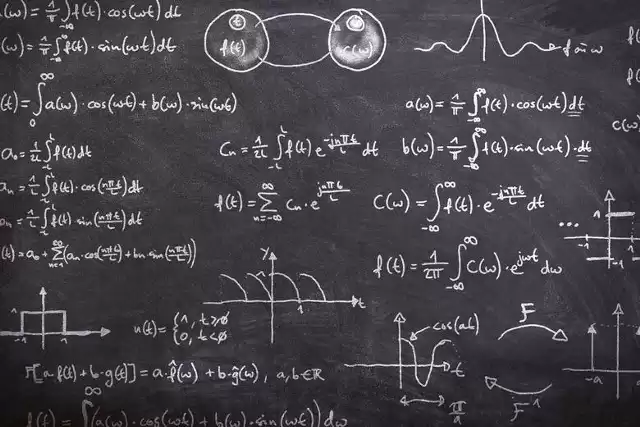 a(ω) = 1/π ∫_{-∞}^{∞} f(t)·cos(ωt) dt
b(ω) = 1/π ∫_{-∞}^{∞} f(t)·sin(ωt) dt
t f(t)
t c(ω)
f(t) = ∫_0^∞ a(ω)·cos(ωt) + b(ω)·sin(ωt)
a(ω) = 1/π ∫_{-∞}^{∞} f(t)·cos(ωt) dt
a₀ = 1/2L ∫_{-L}^{L} f(t) dt
Cn = 1/2L ∫_{-L}^{L} f(t) e^{-jnπt/L} dt
b(ω) = 1/π ∫_{-∞}^{∞} f(t)·sin(ωt)·dt
c(ω)
an = 1/L ∫_{-L}^{L} f(t)·cos(nπt/L) dt
f(t) = Σ_{n=-∞}^{∞} Cn·e^{jnπt/L}
C(ω) = ∫_{-∞}^{∞} f(t)·e^{-jnπt/L} dt
∫_{-L}^{L} f(t)·sin(nπt/L) dt
... 1
-1
f(t) = a₀ + Σ_{n=1}^{∞} (an·cos(nπt/L) + bn·sin(nπt/L))
f(t) = 1/2π ∫_{-∞}^{∞} C(ω)·e^{jωt} dω
y
1
1 t
1
-1 1
u(t) = {1, t≥0
0, t<0
cos(at)
t
π/a
F
F⁻¹
-a
F[a·f(t) + b·g(t)] = a·f̂(ω) + b·ĝ(ω), a,b∈ℝ
f(t) = ∫^∞ (a(ω)·cos(ωt) + b(ω)·sin(ωt)) dω